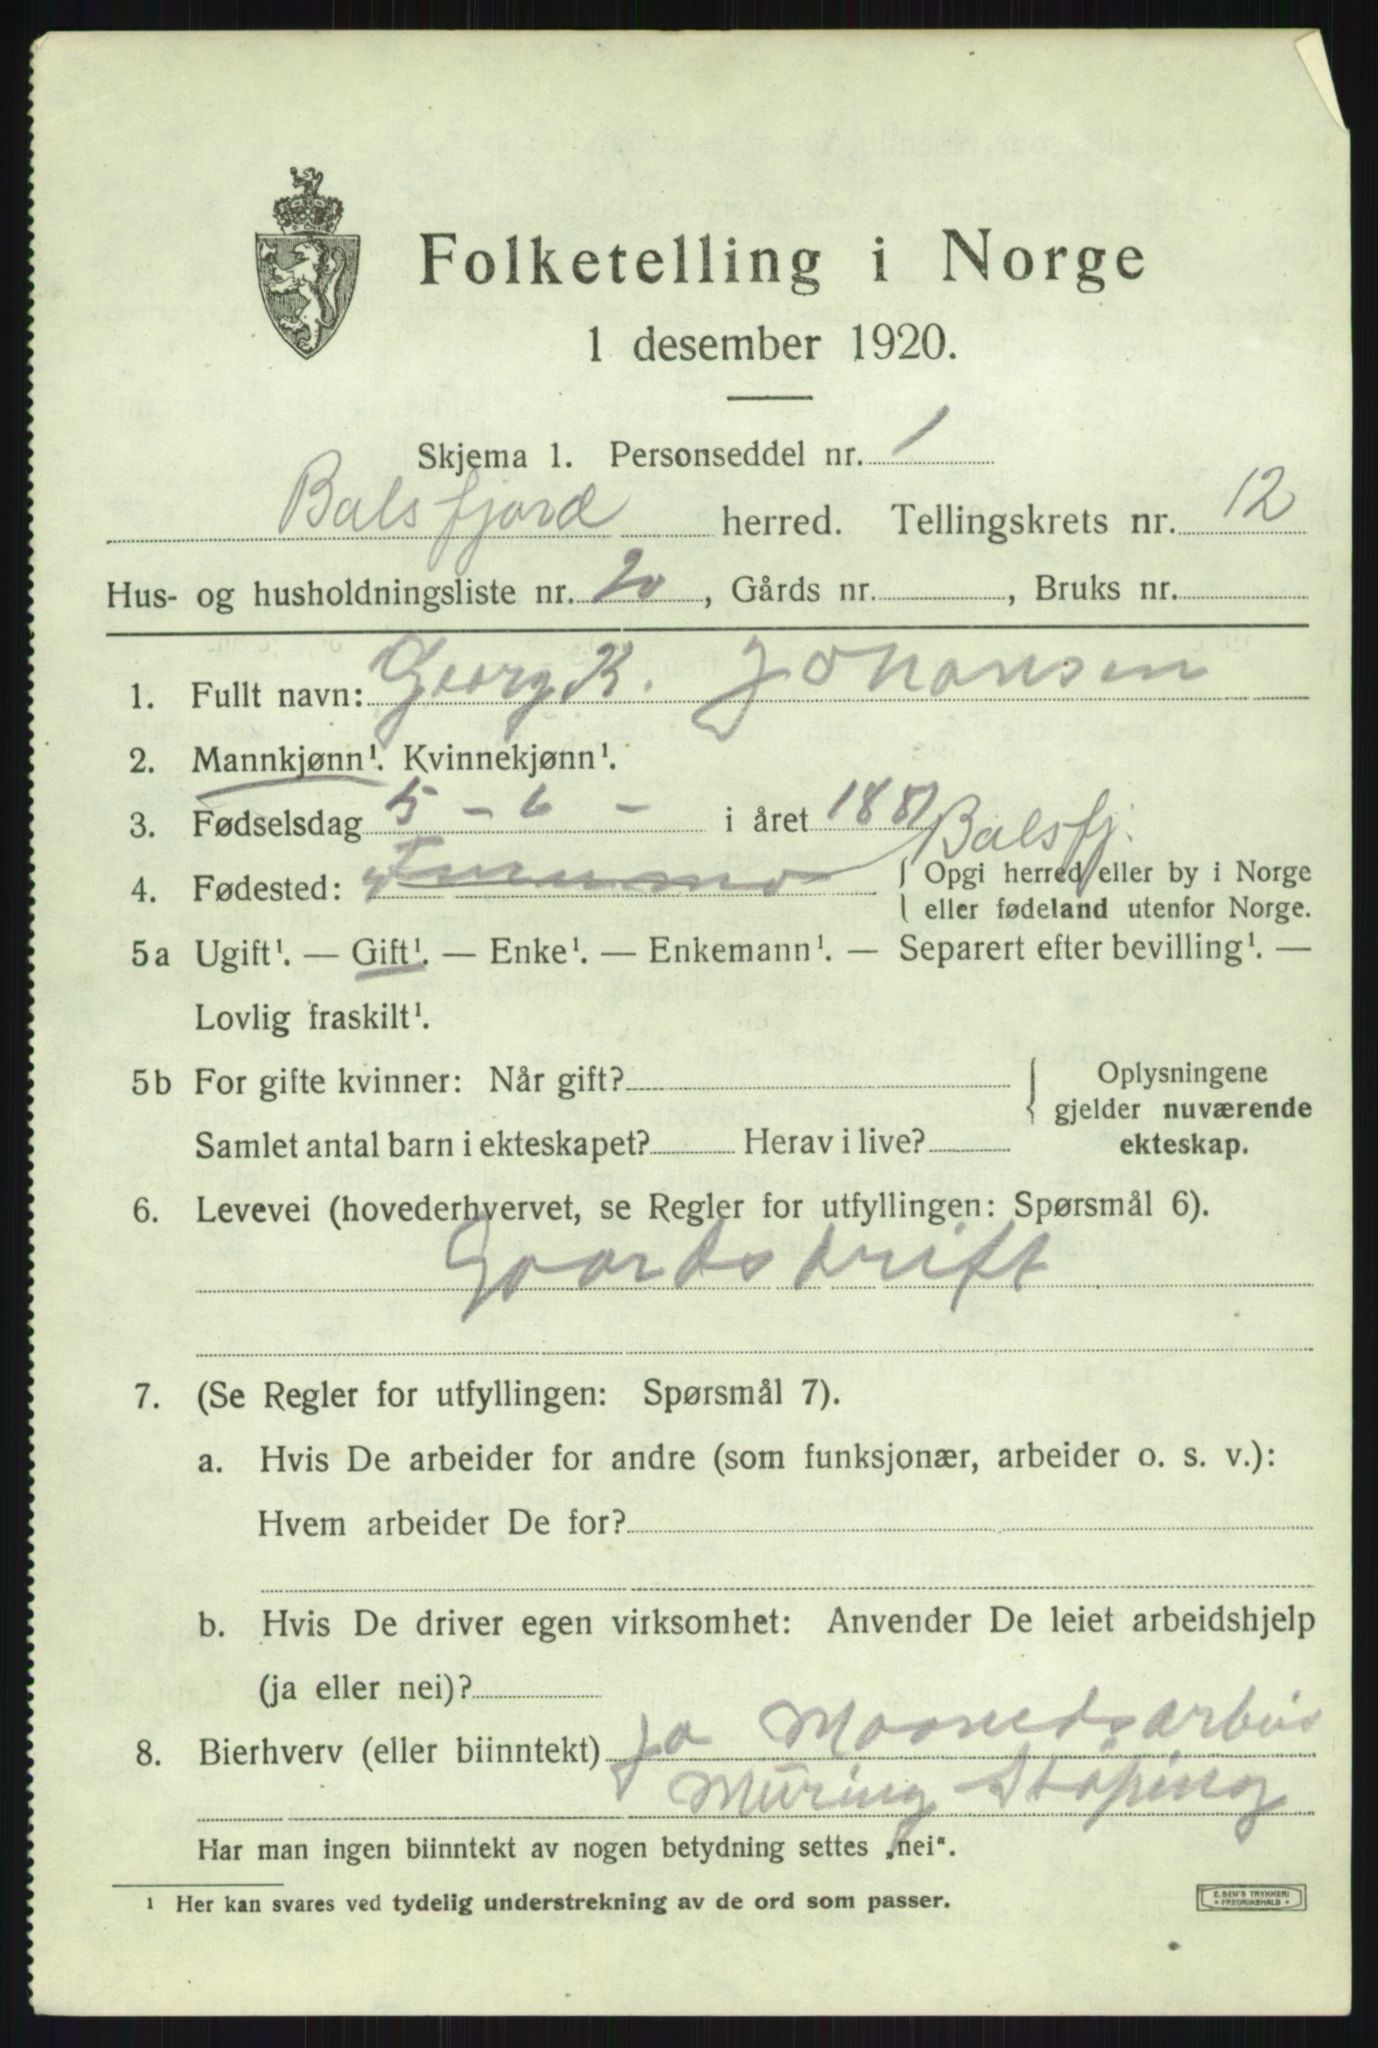 Folketelling i Norge
1 desember 1920.
Skjema 1. Personseddel nr. 1
Balsfjord herred. Tellingskrets nr. 12
Hus- og husholdningsliste nr. 20, Gårds nr. , Bruks nr.
1. Fullt navn: Georg K. Johansen
2. Mannkjønn¹. Kvinnekjønn¹.
3. Fødselsdag 5 - 6 - i året 1881
Balsfj.
4. Fødested: { Opgi herred eller by i Norge
{ eller fødeland utenfor Norge.
5a Ugift¹. — Gift¹. — Enke¹. — Enkemann¹. — Separert efter bevilling¹. —
Lovlig fraskilt¹.
5b For gifte kvinner: Når gift? { Oplysningene
gjelder nuværende
Samlet antal barn i ekteskapet? Herav i live? ekteskap.
6. Levevei (hovederhvervet, se Regler for utfyllingen: Spørsmål 6).
Gaardsdrift
7. (Se Regler for utfyllingen: Spørsmål 7).
a. Hvis De arbeider for andre (som funksjonær, arbeider o. s. v.):
Hvem arbeider De for?
b. Hvis De driver egen virksomhet: Anvender De leiet arbeidshjelp
(ja eller nei)?
8. Bierhverv (eller biinntekt) Ja
Muring Støping
Har man ingen biinntekt av nogen betydning settes „nei“.
¹ Her kan svares ved tydelig understrekning av de ord som passer.
E. SEM'S TRYKKERI
• FREDRIKSHALD •